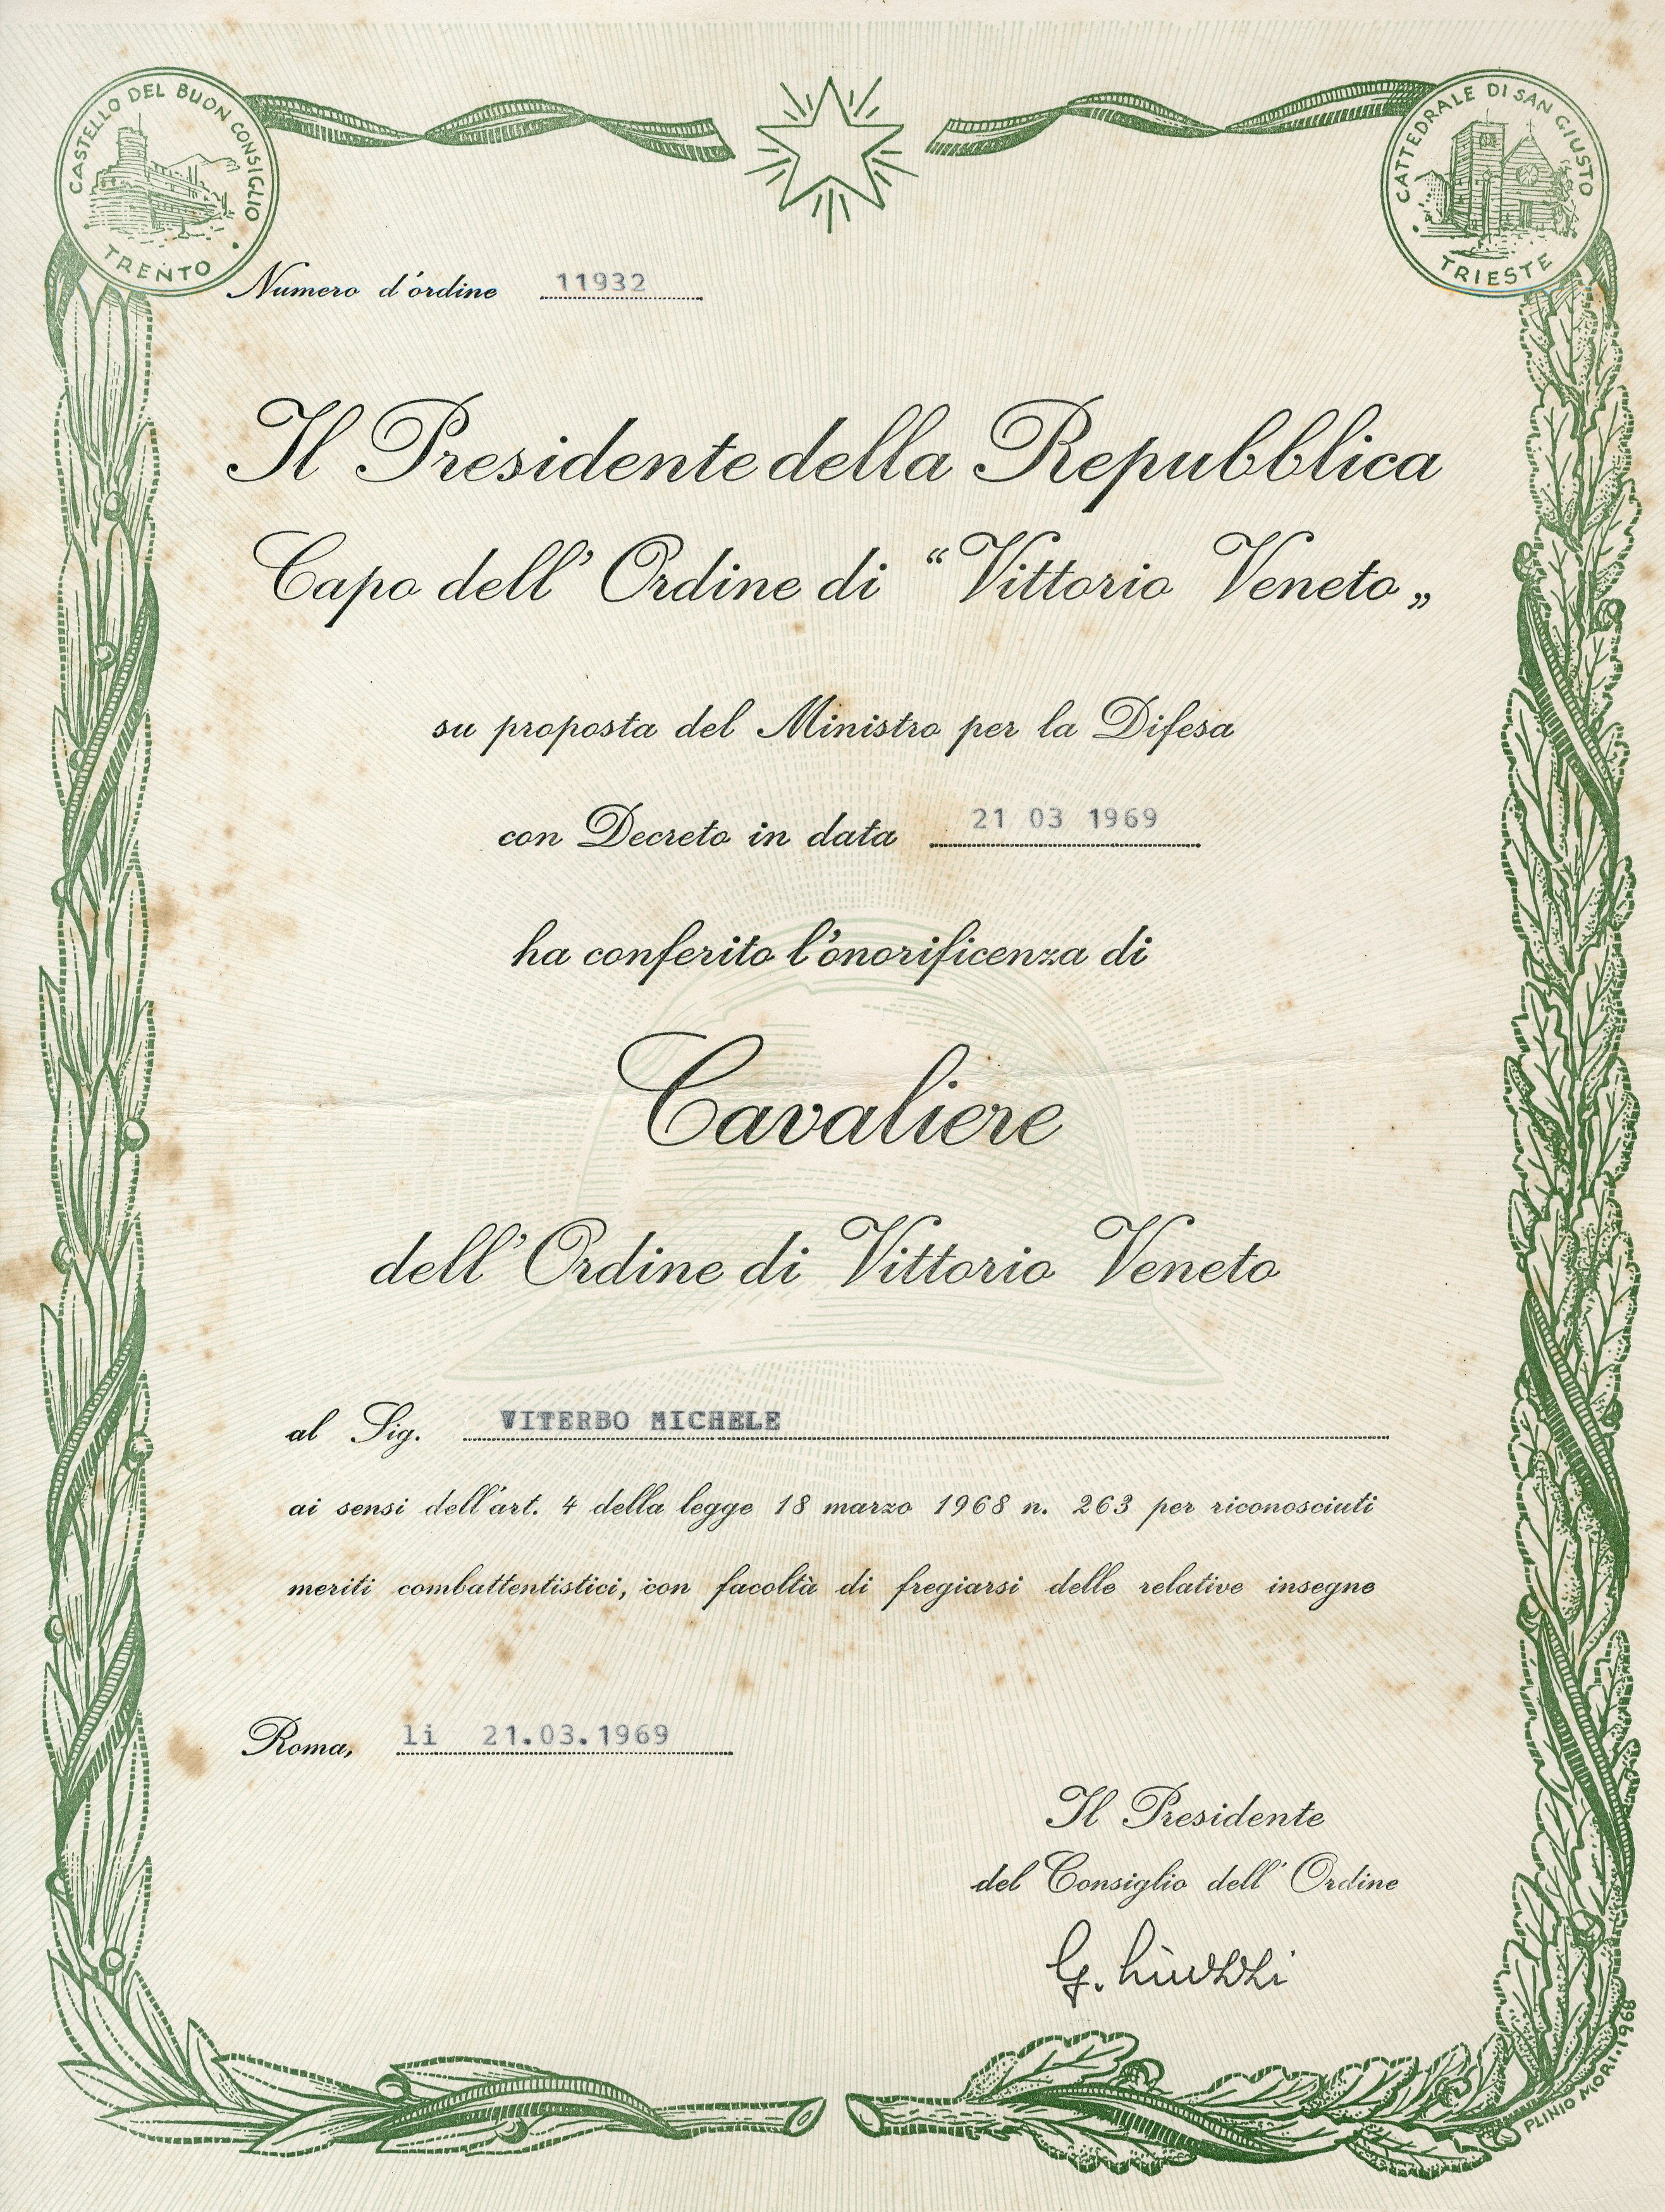 CASTELLO DEL BUON CONSIGLIO
TRENTO
CATTEDRALE DI SAN GIUSTO
TRIESTE
Numero d'ordine 11932
Il Presidente della Repubblica
Capo dell' Ordine di “Vittorio Veneto„
su proposta del Ministro per la Difesa
con Decreto in data 21 03 1969
ha conferito l'onorificenza di
Cavaliere
dell'Ordine di Vittorio Veneto
al Sig. VITERBO MICHELE
ai sensi dell'art. 4 della legge 18 marzo 1968 n. 263 per riconosciuti
meriti combattentistici, con facoltà di fregiarsi delle relative insegne
Roma, li 21.03.1969
Il Presidente
del Consiglio dell' Ordine
G.
PLINIO MORI.1968